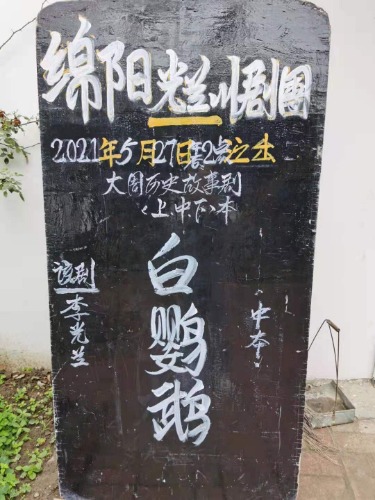 绵阳光兰川剧團
2021年5月27日下午2点演出
大型历史故事剧
<上.中.下>本
白鹦鹉
"中本"
李光兰